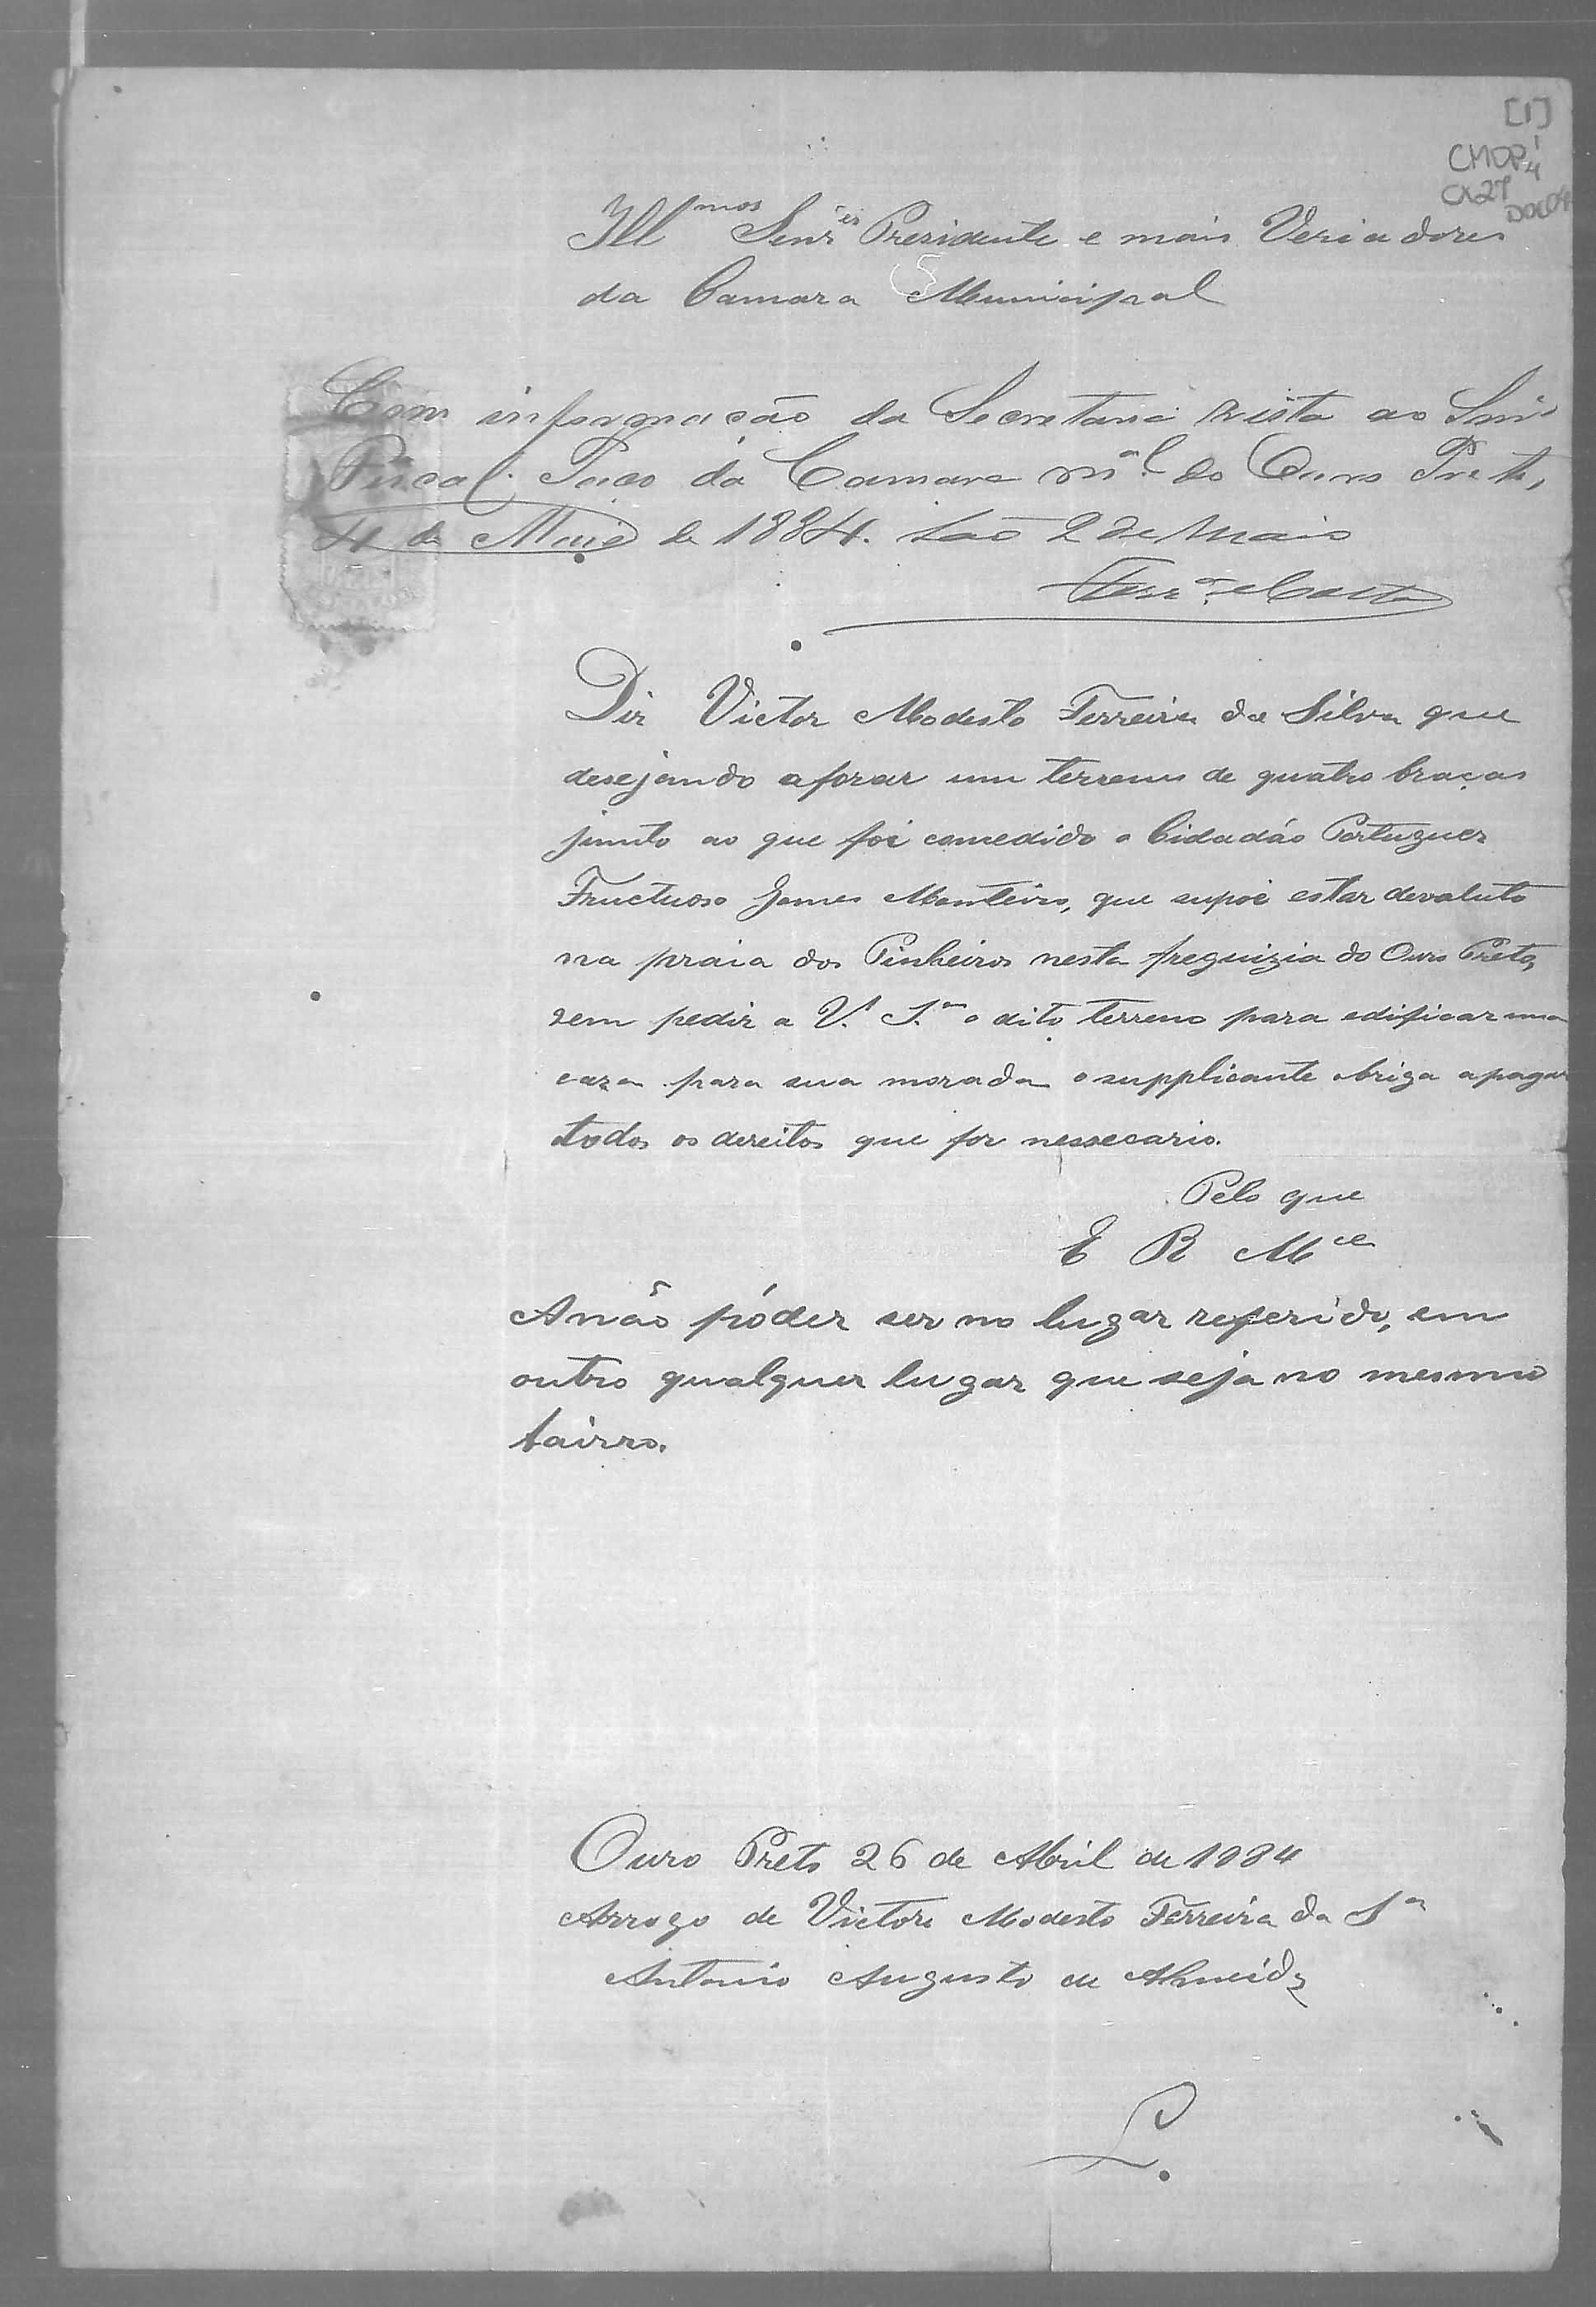 [1]
CMOP 1
4
CX27
DOC04
Ill.mos Senr.es Presidente e mais Veriadores
da Camara Municipal
Com informação da Secretaria vista ao Snr.
Fiscal. Paço da Camara M.al do Ouro Preto,
4 de Maio de 1884. São 2 de Maio
Ferr.a Costa
Diz Victor Modesto Ferreira da Silva que
desejando aforar um terreno de quatro braças
junto ao que foi consedido o Cidadão Portuguez
Fructuoso Gomes Monteiro, que supoe estar devaluto
na praia dos Pinheiros nesta freguizia do Ouro Preto,
vem pedir a V.ª S.as o dito terreno para edificar uma
caza para sua morada o supplicante obriga a pagar
todos os dereitos que for nessecario.
Pelo que
E R M.ce
A não póder ser no lugar referido, em
outro qualquer lugar que seja no mesmo
bairro.
Ouro Preto 26 de Abril de 1884
Arrogo de Victor Modesto Ferreira da S.a
Antonio Augusto de Almeida